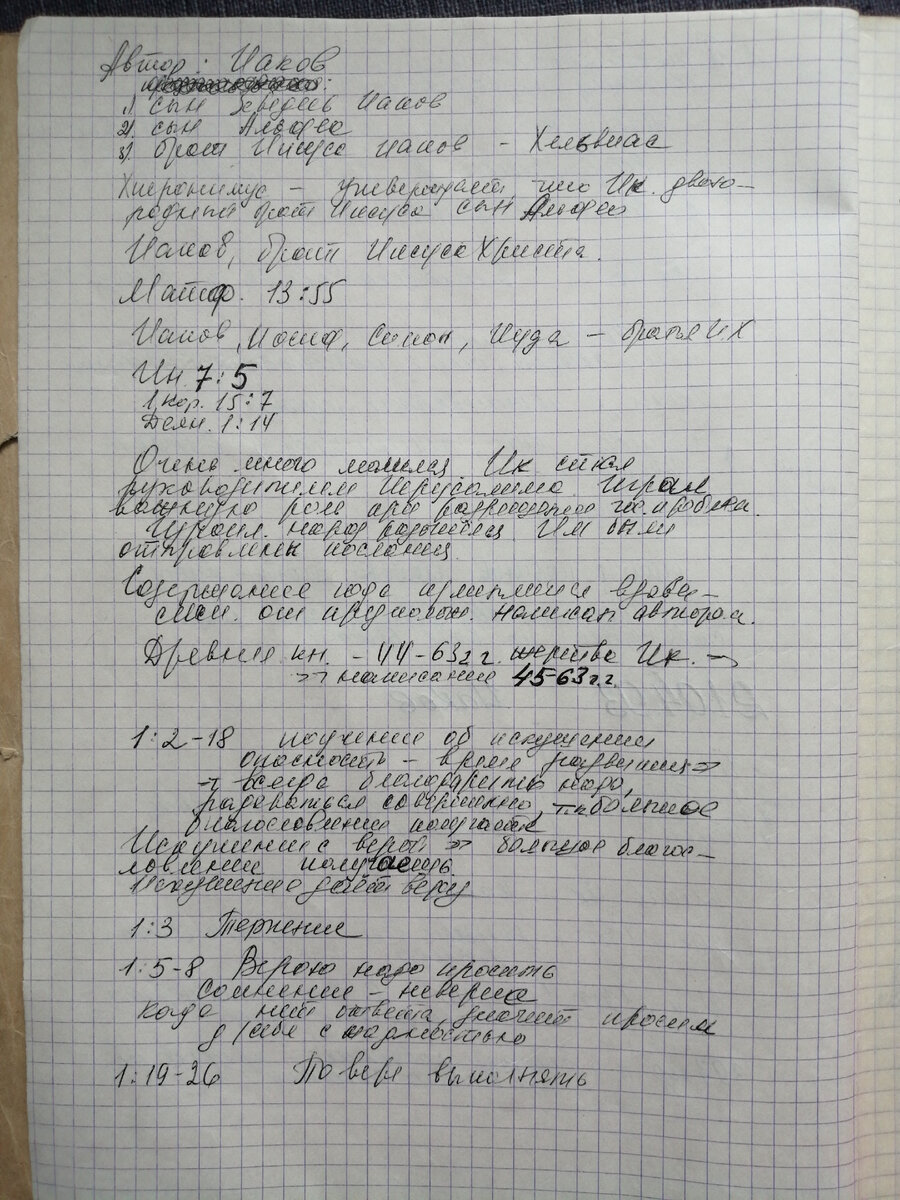 Автор: Иаков
1. сын Зеведеев Иаков
2. сын Алфея
3. брат Иисуса Иаков - Хельвиас
Хиеронимус - утверждает что Ик. двою-
родный брат Иисуса сын Алфея
Иаков, брат Иисуса Христа.
Матф. 13:55
Иаков, Иосиф, Симон, Иуда - братья И.Х
Ин. 7:5
1 Кор. 15:7
Деян. 1:14
Очень много молился. Ик стал
руководителем Иерусалима Играл
важную роль при разрешении
народ Им были
отправлены
Содержание
от написан автором.
Древняя кн. - 44-63 г.г. Ик. →
→ написание 45-63 г.г.
1:2-18 поучение об искушении
опасность - время развития →
→ всегда благодарить надо,
радоваться совершенно, т.к большое
благословение получаем
Искушение с верой → большое благос-
ловение получаешь.
Искушение даёт веру
1:3 Терпение
1:5-8 Верою надо просить
Сомнение - неверие
Когда нет ответа, значит просим
д/себя с жадностью
1:19-26 По вере выполнять